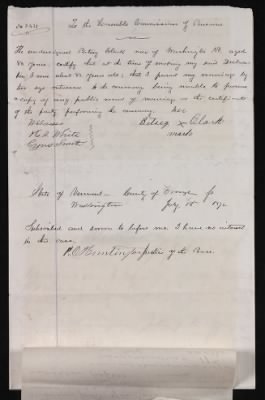 To the Honorable Commissioner of Pensions
The undersigned Betsey Clark now of Washington Vt. aged
years, certify that at the time of moving my said Declara-
tion I was about years old; that I proved my marriage by
eye witnesses to the ceremony being unable to procure
a copy of any public record of marriage or the certificate
of the party performing the ceremony
her
Witnesses Betsey x Clark
White mark
State of Vermont County of Orange ss
Washington July 1872
Subscribed and sworn to before me, I have no interest
in this case.
Huntington Justice of the Peace